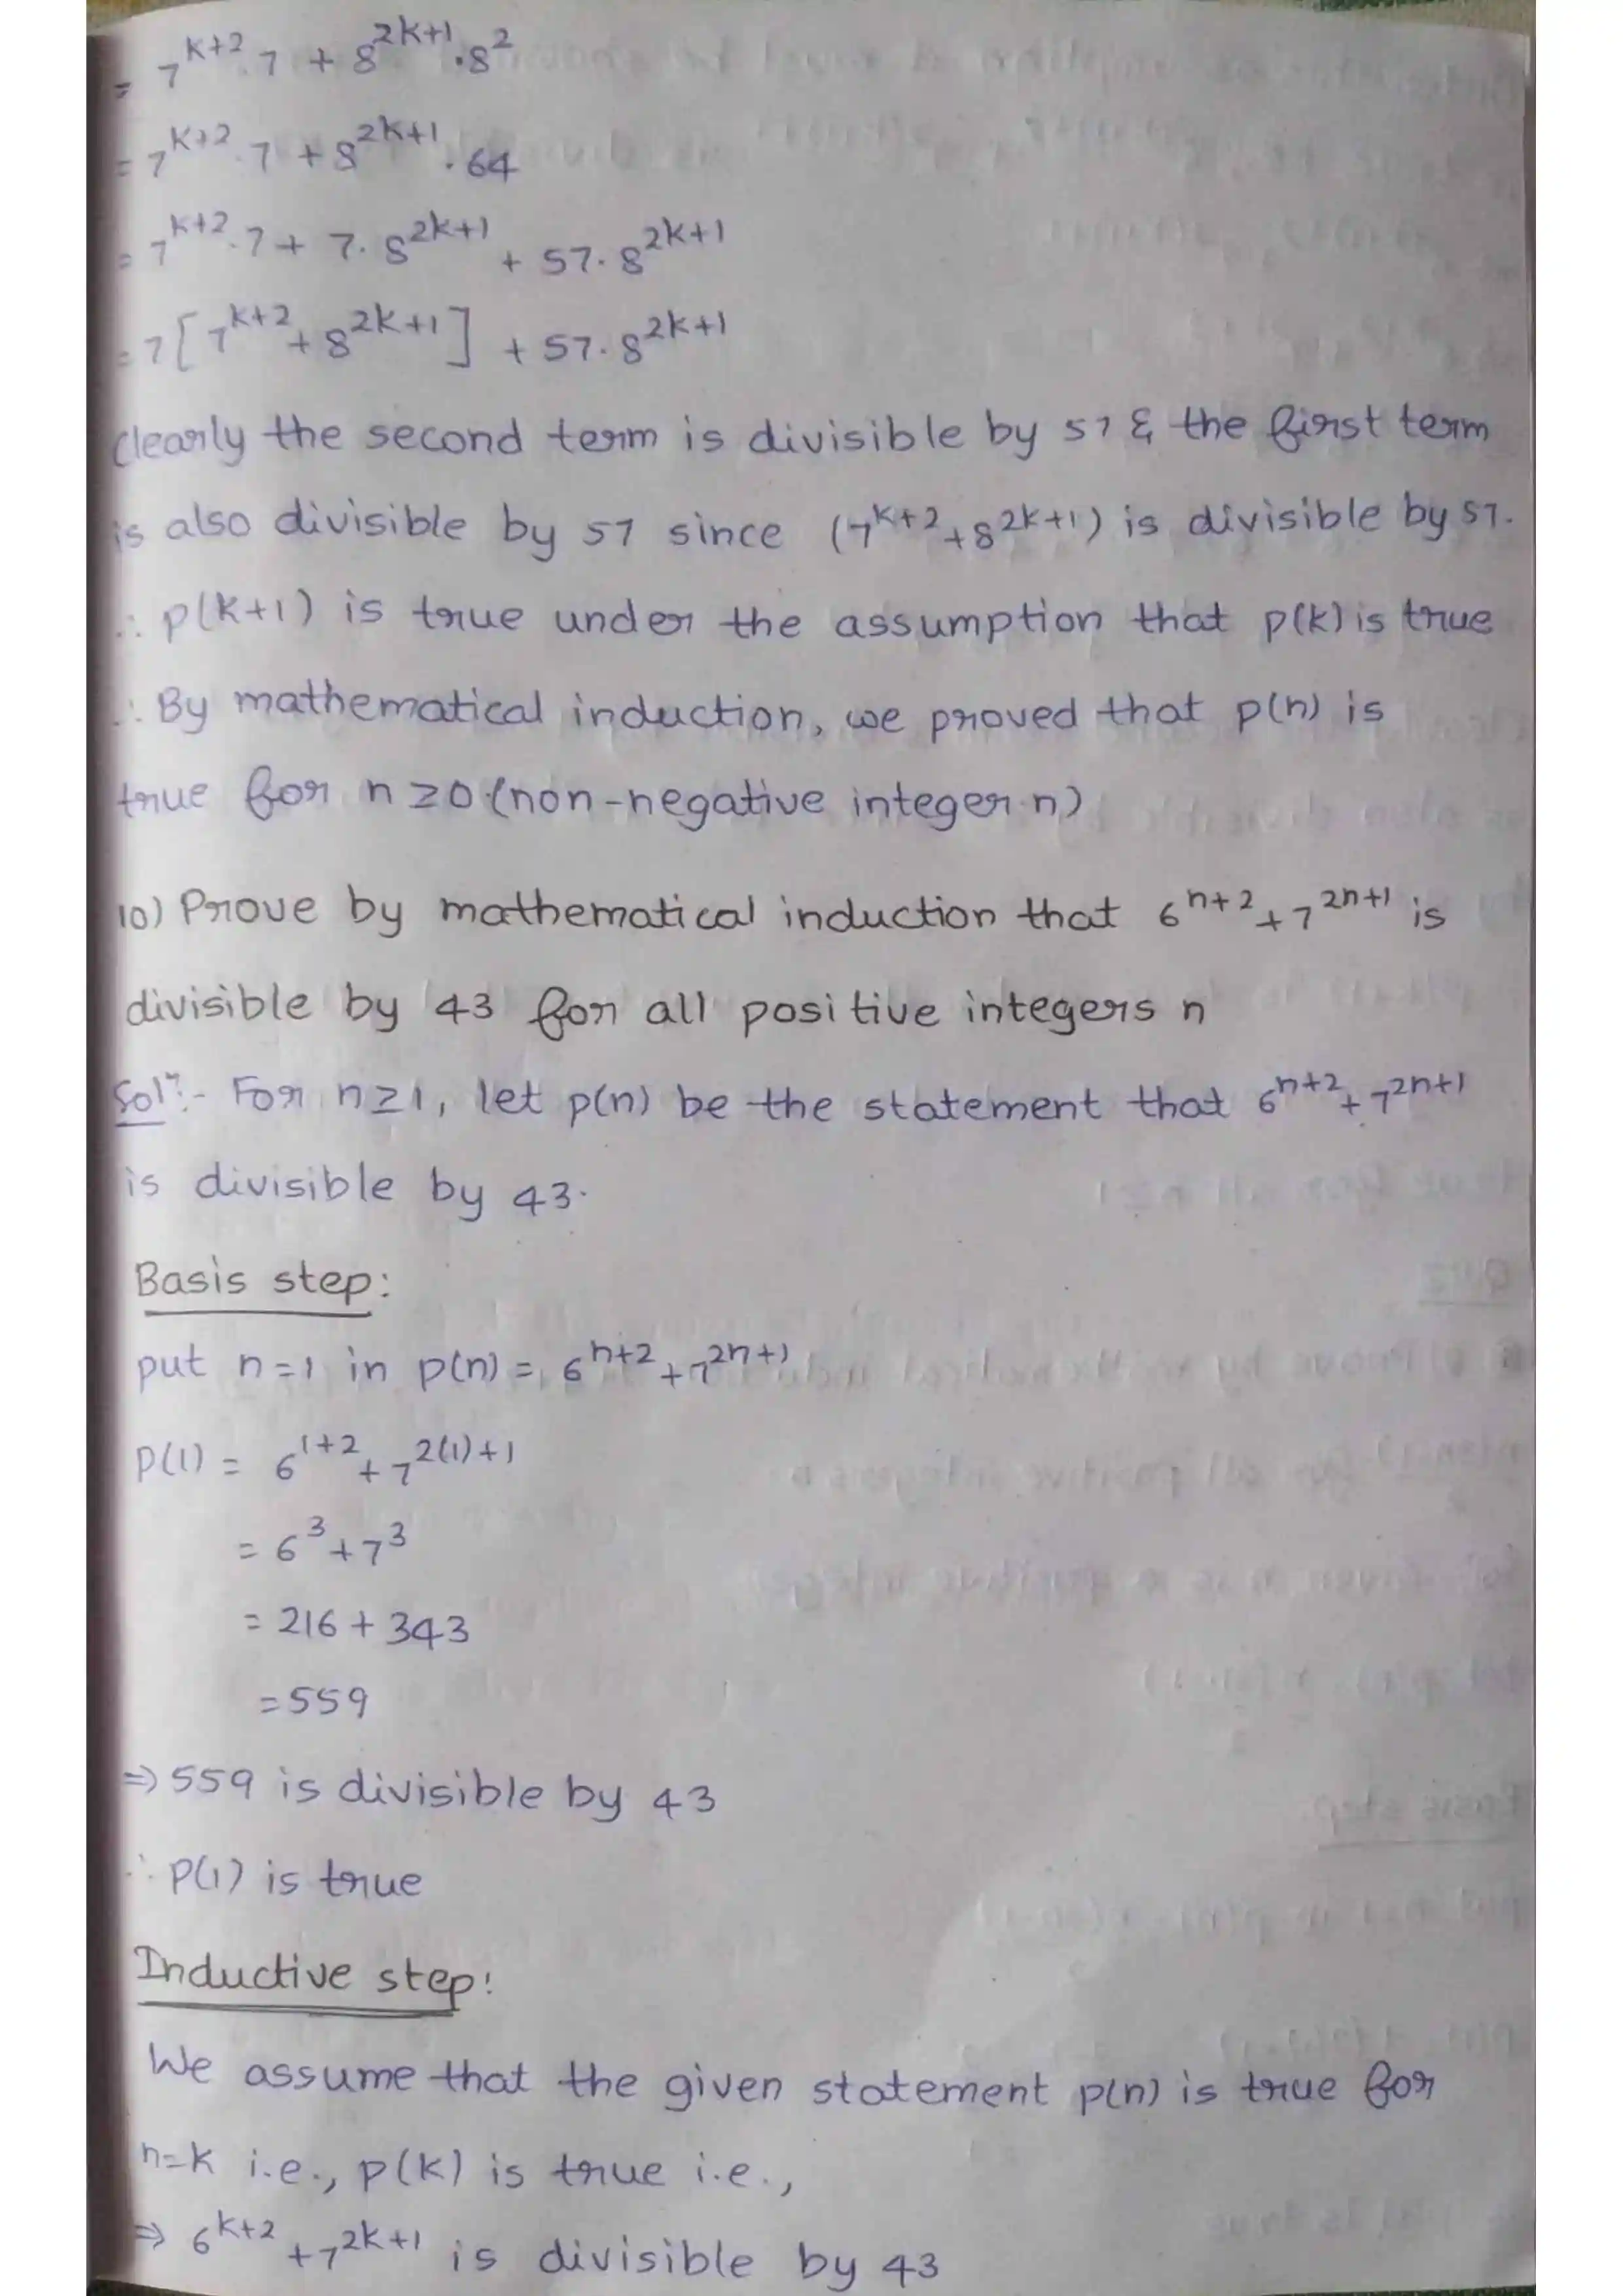 = 7^{k+2}.7 + 8^{2k+1}.8^2
= 7^{k+2}.7 + 8^{2k+1}.64
= 7^{k+2}.7 + 7.8^{2k+1} + 57.8^{2k+1}
= 7[7^{k+2} + 8^{2k+1}] + 57.8^{2k+1}
clearly the second term is divisible by 57 & the first term
is also divisible by 57 since (7^{k+2} + 8^{2k+1}) is divisible by 57.
∴ p(k+1) is true under the assumption that p(k) is true
∴ By mathematical induction, we proved that p(n) is
true for n≥0 (non-negative integer n)
10) Prove by mathematical induction that 6^{n+2} + 7^{2n+1} is
divisible by 43 for all positive integers n
Solⁿ:- For n≥1, let p(n) be the statement that 6^{n+2} + 7^{2n+1}
is divisible by 43.
Basis step:
put n=1 in p(n) = 6^{n+2} + 7^{2n+1}
P(1) = 6^{1+2} + 7^{2(1)+1}
= 6^3 + 7^3
= 216 + 343
= 559
⇒ 559 is divisible by 43
∴ P(1) is true
Inductive step:
We assume that the given statement p(n) is true for
n=k i.e., p(k) is true i.e.,
⇒ 6^{k+2} + 7^{2k+1} is divisible by 43